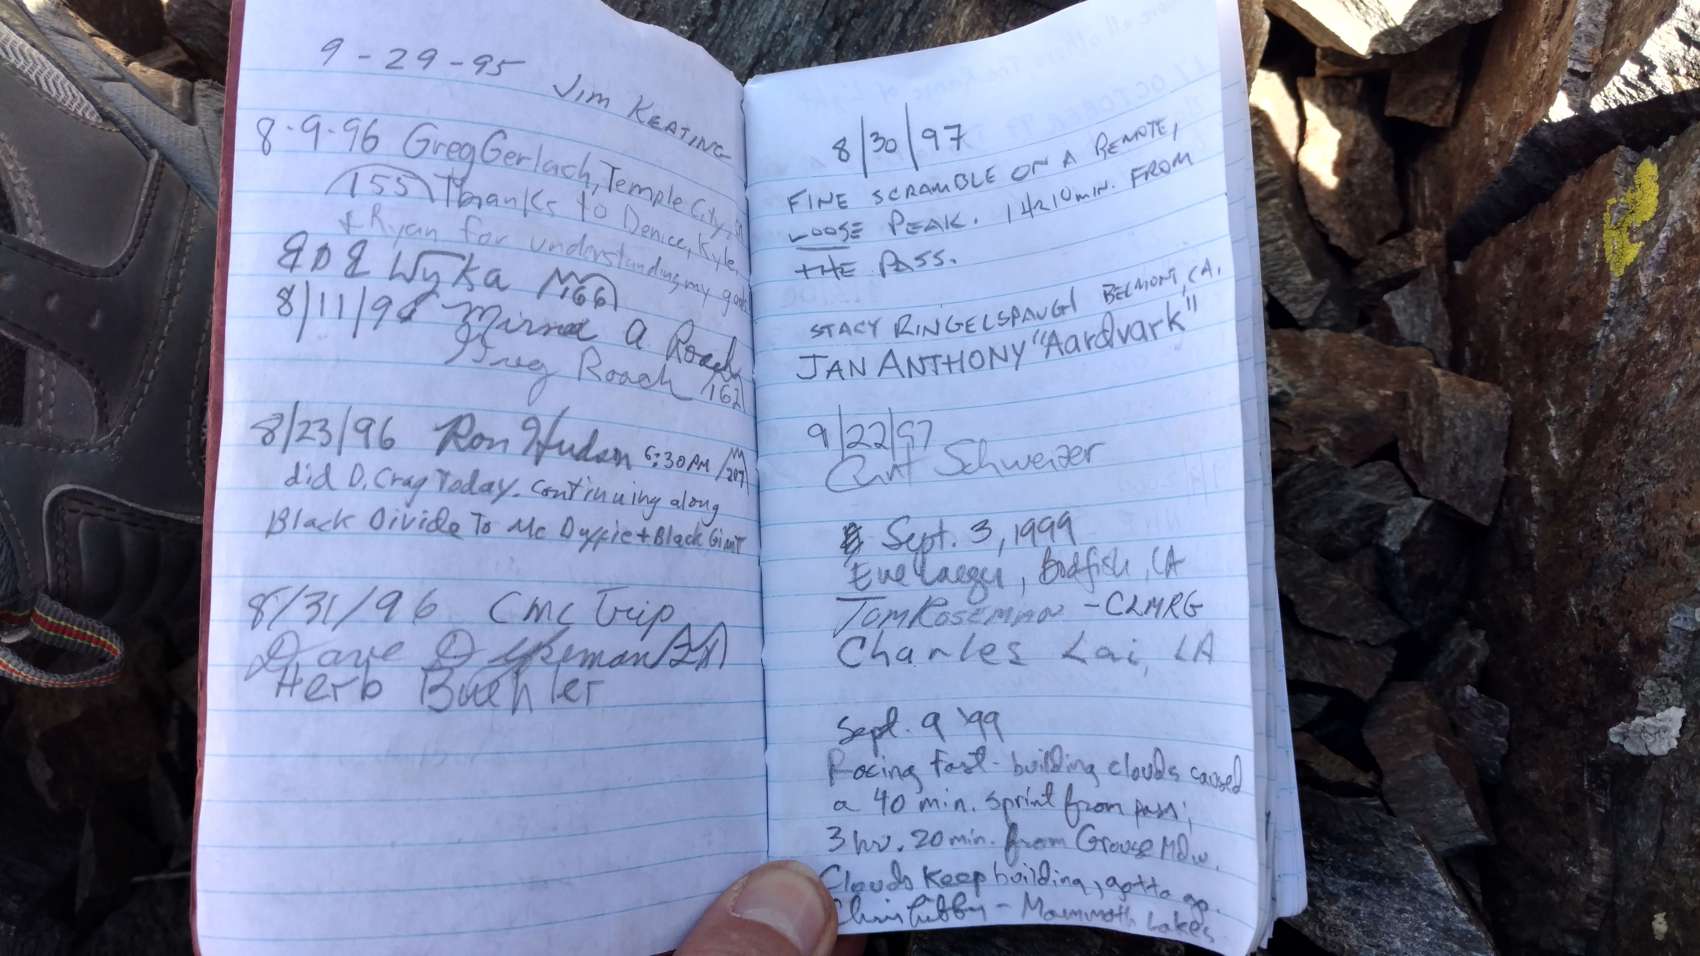 9-29-95 Jim KEATING
8-9-96 Greg Gerlach, Temple City,
155 Thanks to Denice, Kyle,
& Ryan for understanding my
Wyka 166
8/11/96 A. Roach
Greg Roach 162
8/23/96 Ron Hudson 6:30PM 207
did D. Crag Today. continuing along
Black Divide To Mc Duffie + Black Giant
8/31/96 CMC Trip
Dave Dykeman
Herb Buehler
8/30/97
FINE SCRAMBLE ON A REMOTE,
LOOSE PEAK. 1 HR 10 MIN. FROM
THE PASS.
STACY RINGELSPAUGH BELMONT, CA.
JAN ANTHONY "Aardvark"
9/22/97
Curt Schweizer
Sept. 3, 1999
Eve Laeger, Bodfish, CA
Tom Roseman - CLMRG
Charles Lai, LA
Sept. 9 '99
Racing fast - building clouds caused
a 40 min. sprint from pass;
3 hr. 20 min. from Grouse Mdw.
Clouds keep building, gotta go.
Chris Libby - Mammoth Lakes